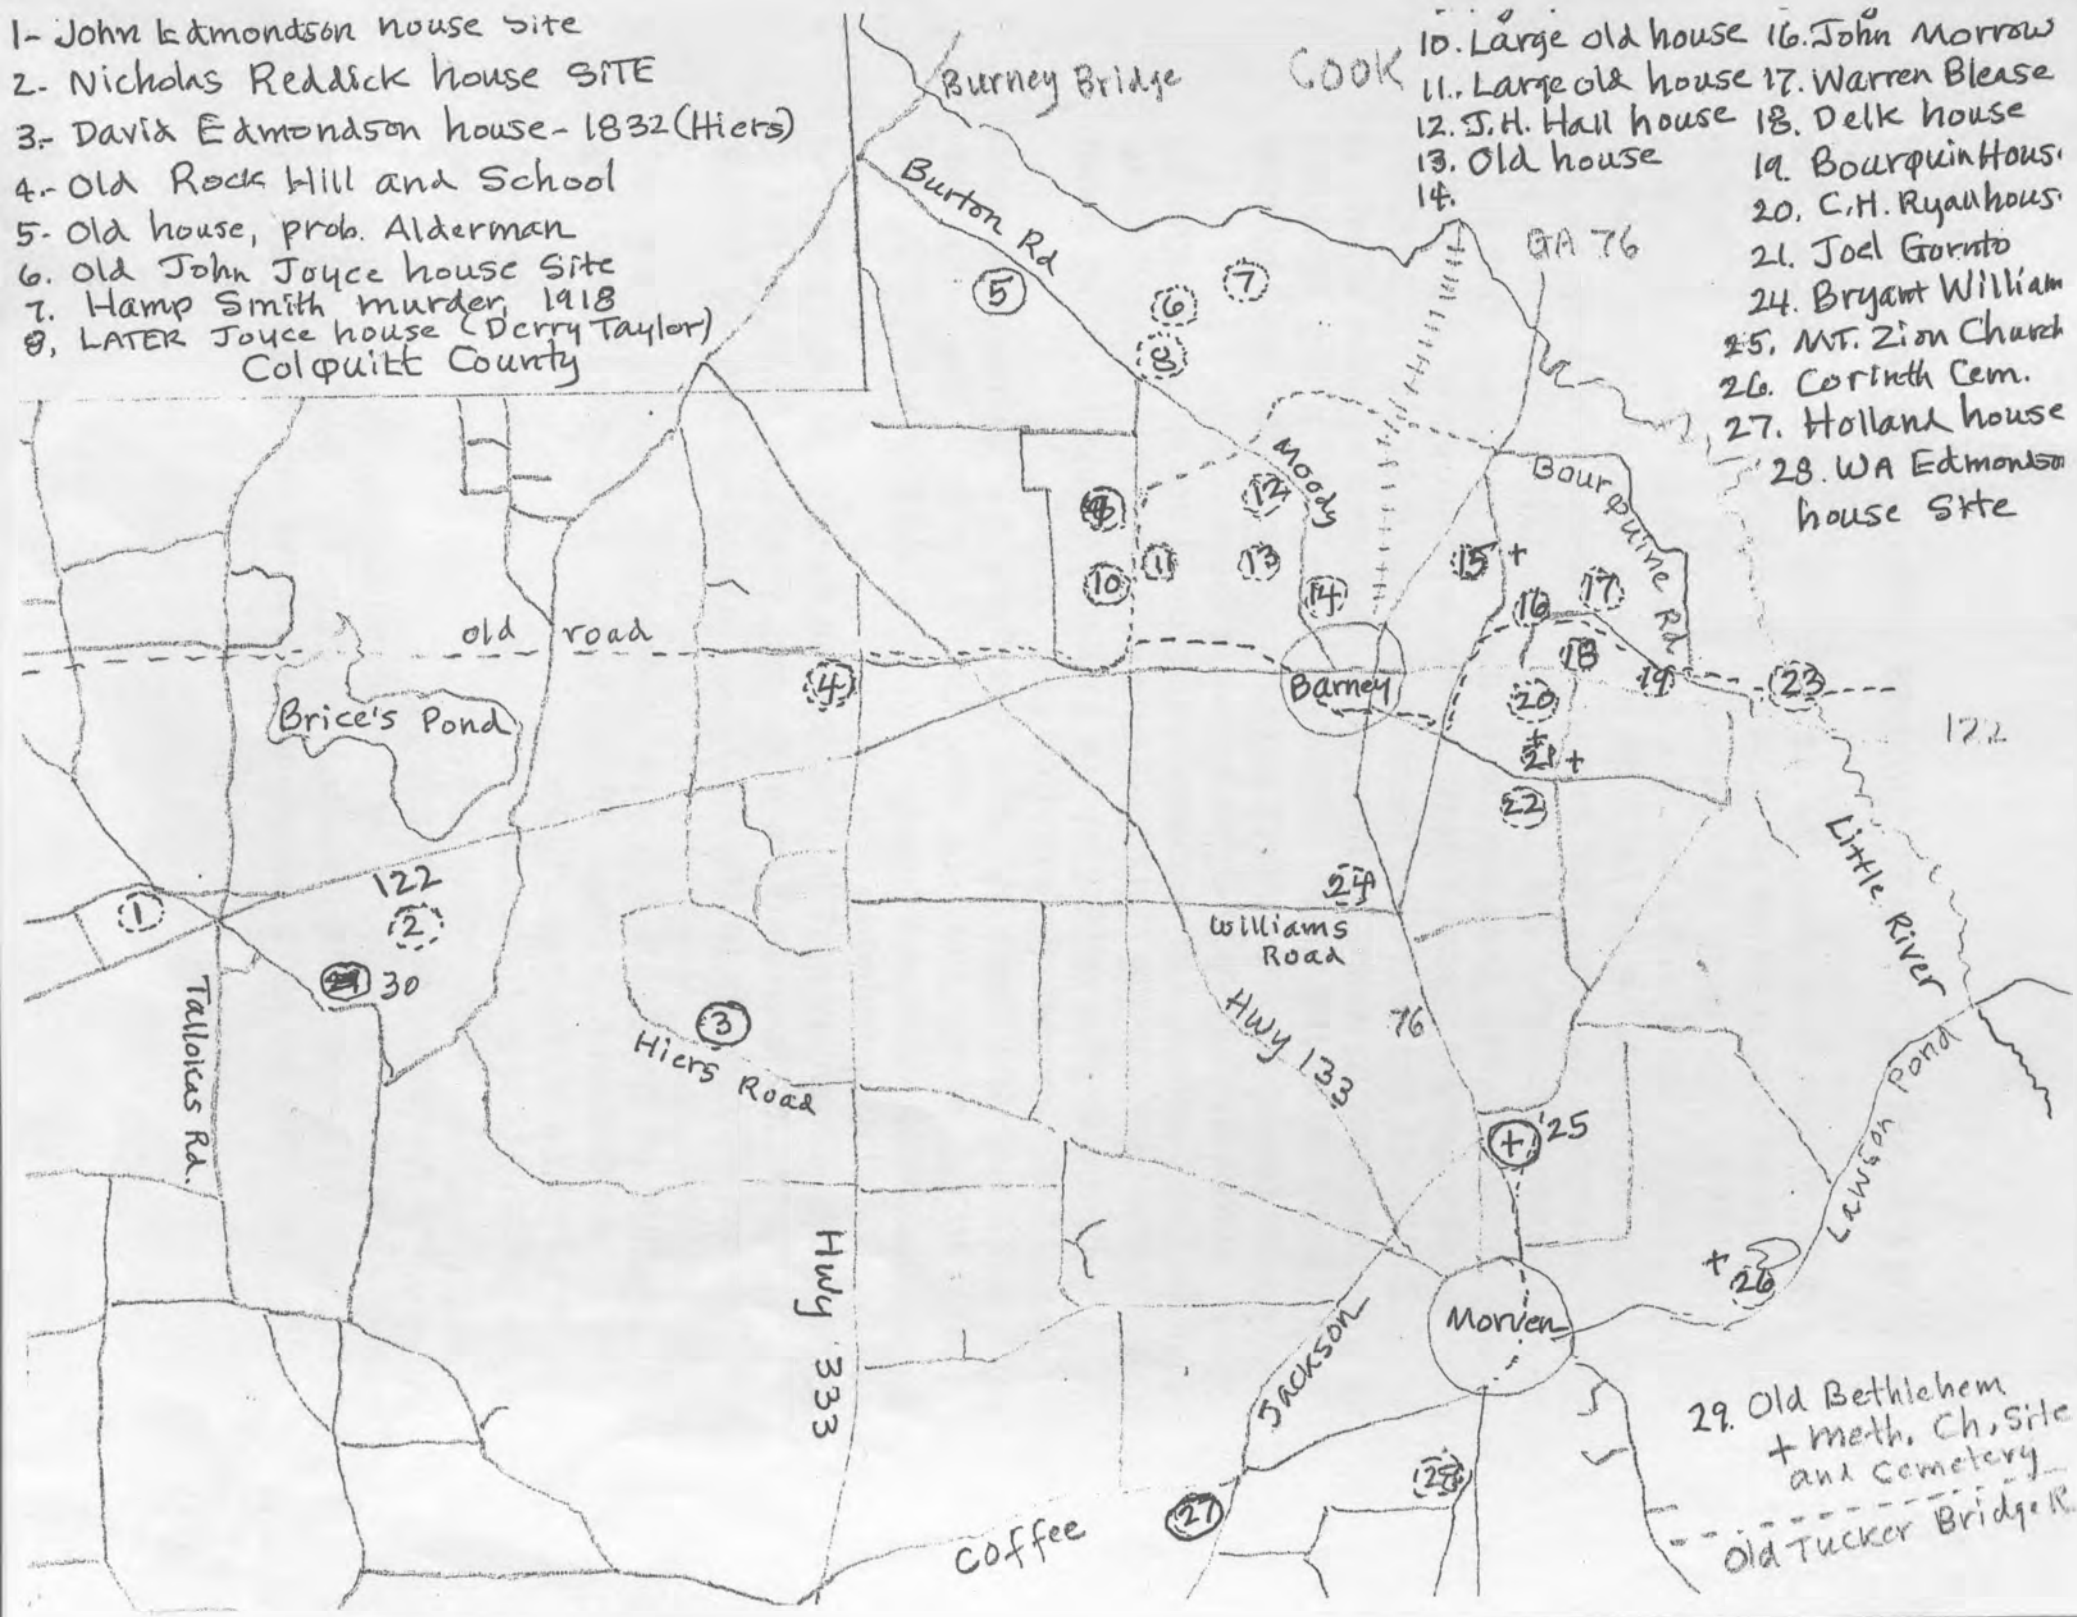 1- John Edmondson house site
2- Nicholas Reddick house SITE
3- David Edmondson house - 1832 (Hiers)
4.- Old Rock Hill and School
5- Old house, prob. Alderman
6. Old John Joyce house Site
7. Hamp Smith murder, 1918
8, LATER Joyce house (Derry Taylor)
Colquitt County
10. Large old house
11. Large old house
12. J.H. Hall house
13. Old house
14.
16. John Morrow
17. Warren Blease
18. Delk house
19. Bourquin Hous
20. C.H. Ryall hous
21. Joel Gornto
24. Bryant William
25. MT. Zion Church
26. Corinth Cem.
27. Holland house
28. WA Edmondson
house Site
Burney Bridge
Cook
Burton Rd
GA 76
5
6
7
8
Moody
Bourquine Rd
12
10
11
13
14
15 +
16
17
18
19
20
+
21 +
22
23
122
old road
4
Barney
Brice's Pond
Little River
122
1
2
30
24
Williams
Road
Talloicas Rd.
3
Hiers Road
Hwy 133
76
Lawson Pond
+ 25
Hwy 333
+
26
Morven
Jackson
28
27
Coffee
29. Old Bethlehem
+ Meth. Ch, Site
and Cemetery
Old Tucker Bridge R